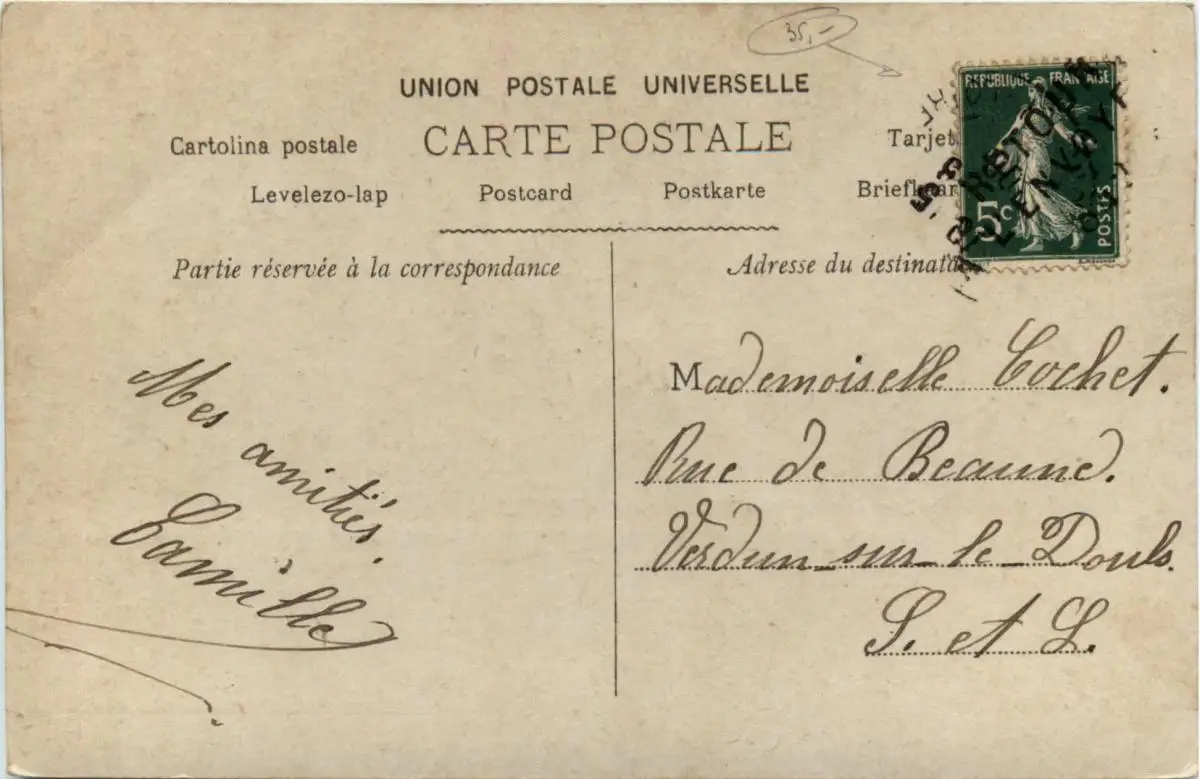 35,-
UNION POSTALE UNIVERSELLE
Cartolina postale CARTE POSTALE Tarjet
Levelezo-lap Postcard Postkarte Briefkaar
Partie réservée à la correspondance
Adresse du destinata
REPUBLIQUE FRANÇAISE
5c
POSTES
Mes amitiés.
Camille
Mademoiselle Cochet.
Rue de Beaune.
Verdun-sur-le-Doubs.
S. et L.